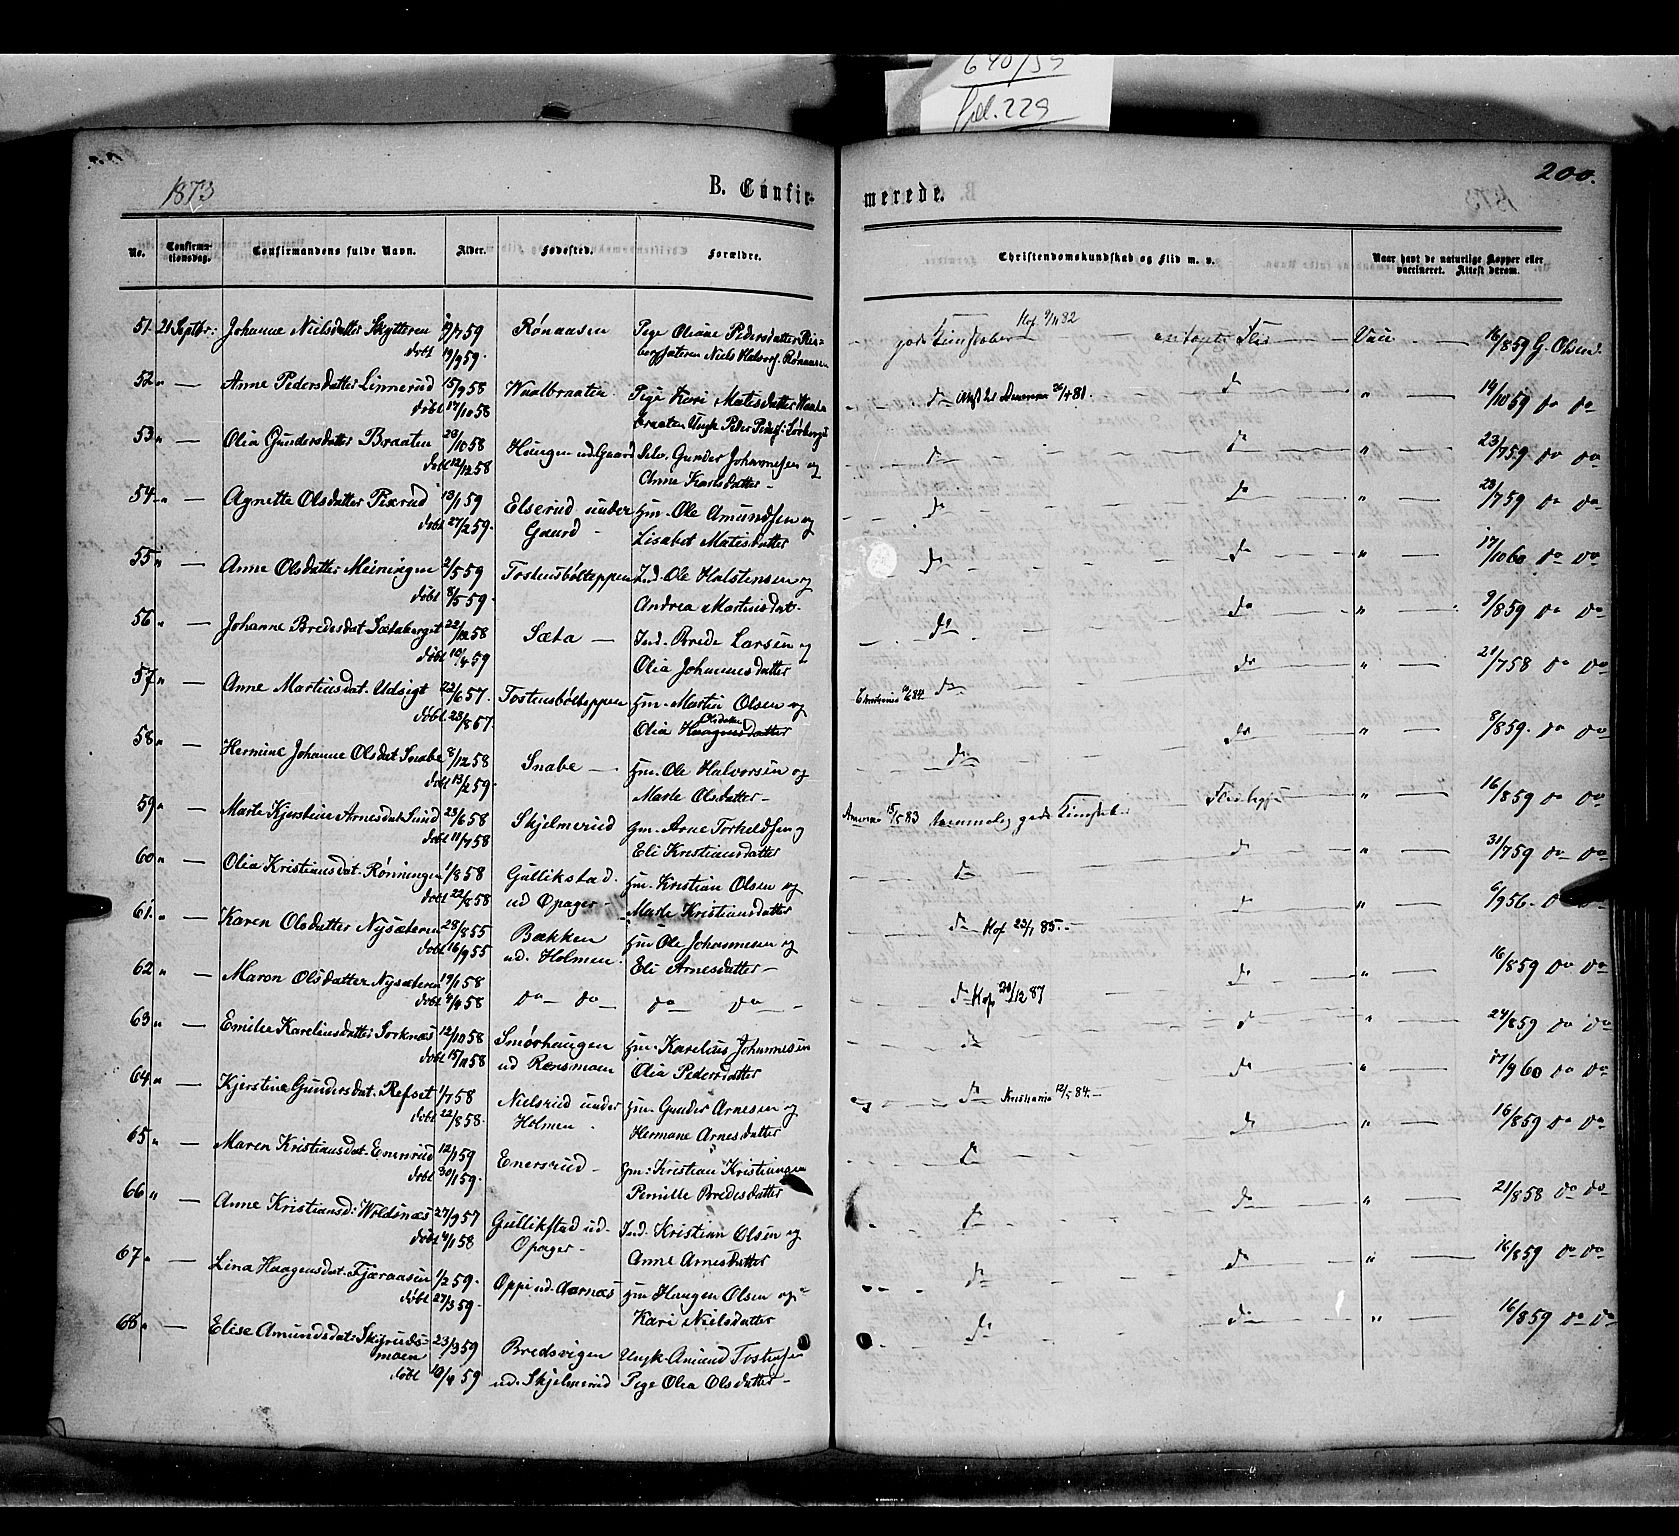 640/55
fol. 229
1873
B. Confir-
merede.
200.
No.
Confirma-
tionsdag.
Confirmandens fulde Navn.
Alder.
Fødested.
Forældre.
Christendomskundskab og Flid m. v.
Naar havt de naturlige Kopper eller
vaccineret. Attest derom.
51. 21 Septbr: Johanne Nielsdatter Skytteren 9/7 59 Rønaasen Pige Oleane Pedersdatter
døbt 19/9 59. Niels Halvors. Rønaasen
Hof 9/11 82 Flid Vacc — 16/8 59 G. Olsen.
52 " — Anne Pedersdatter Linnerud 15/9 58 Waalbraaten Pige Kari Matisdatter
døbt 17/10 58 braaten Ungk Peder
do 26/4 81. do " — 14/10 59 do do
53 " — Olia Gundersdatter Braaten 29/10 58 Haugen ud Gaard Selv. Gunder Johannesen og
døbt 12/12 58 Anne Karlsdatter —
do do " — 23/7 59 do do
54 " — Agnette Olsdatter Pierud 13/1 59 Elserud under Hm. Ole Amundsen og
døbt 27/2 59. Gaard — Lisabet Matisdatter
do do " — 23/7 59 do do
55 " — Anne Olsdatter Meiningen 2/5 59 Tostensbøleppen Ind. Ole Halstensen og
døbt 8/5 59. Andrea Martinsdat.
do do " — 17/10 60 do do
56 " — Johanne Bredesdat. Sætaberget 22/12 58 Sæta — Ind. Brede Larsen og
døbt 10/4 59 Olia Johannesdatter
do do " — 9/8 59 do do
57 " — Anne Martinsdat. Udsigt 22/6 57. Tostensbøleppen Hm. Martin Olsen og
døbt 23/8 57. Olia Olsdatter
do do " — 21/7 58 do do
58 " — Hermine Johanne Olsdat Snabe 8/12 58 Snabe — Hm. Ole Halvorsen og
døbt 13/2 59. Marte Olsdatter —
do do " — 8/8 59. do do
59 " — Marte Kjerstine Arnesdat. Sund 23/6 58 Skjelmerud Gm. Arne Torkeldsen og
døbt 11/7 58 Eli Kristiansdatter
15/5 83 temmelig gode Kundsk. " — 16/8 59 do do
60 " — Olia Kristiansdat. Rønningen 1/8 58 Gullikstad. Hm. Kristian Olsen og
døbt 22/8 58 ud Opager — Marte Kristiansdatter
do do " — 31/7 59 do do
61. " — Karen Olsdatter Nysæteren 28/8 55 Bækken Hm Ole Johannesen og
døbt 16/9 55 ud. Holmen. Eli Arnesdatter —
do Hof 23/1 85. — do " — 6/9 56. do do
62 " — Maren Olsdatter Nysæteren 19/1 58 do — do — do do —
døbt 4/4 58
do Hof 29/12 87 do " — 16/8 59 do do
63 " — Emilie Kareliusdatter Torknæs 12/10 58 Smørhaugen Hm. Karelius Johannesen
døbt 15/11 58 ud Rensmoen Olia Pedersdatter
do do " — 24/8 59 do do
64 " — Kjerstine Gundersdat. Refset 1/7 58 Nielsrud under Hm. Gunder Arnesen og
døbt 22/8 58. Holmen. Hermane Arnesdatter
do Kristiania 12/5 84. — do " — 17/9 60 do do
65 " — Maren Kristiansdat. Enersrud 12/1 59 Enersrud — Gm. Kristian Kristiansen
døbt 30/1 59. Pernille Bredesdatter
do do " — 16/8 59 do do
66 " — Anne Kristiansd: Woldsnæs 27/9 57 Gullikstad ud. Ind. Kristian Olsen og
døbt 4/1 58 Opager — Anne Arnesdatter
do do " — 21/8 58 do do
67 " — Lina Haagensdat. Fjæraasen 1/2 59. Oppi ud. Aarnæs Hm Haagen Olsen og
døbt 27/3 59. Kari Nielsdatter
do do " — 16/8 59 do do
68 " — Elise Amundsdat: Skjeruds- 23/3 59 Bredsvigen Ungk. Amund Tostensen
moen
døbt 10/4 59 ud. Skjelmerud Pige Olia Olsdatter —
do do " — 16/8 59 do do